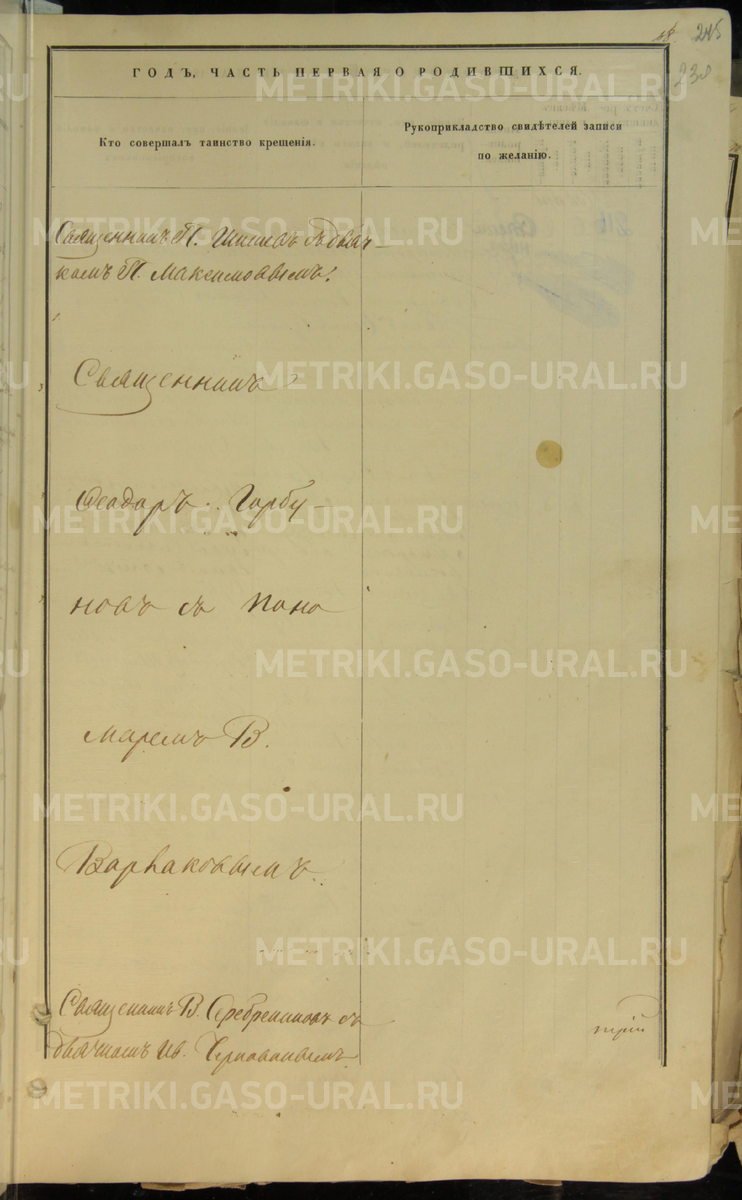 245
ГОДЪ, ЧАСТЬ ПЕРВАЯ О РОДИВШИХСЯ.
Кто совершалъ таинство крещенія.
Рукоприкладство свидѣтелей записи
по желанію.
Священникъ П. съ дьяч-
комъ П. Максимовымъ.
Священникъ
Ѳеодоръ Горбу-
новъ съ поно
маремъ В.
Варваковымъ.
Священникъ В. Серебрениковъ съ
дьячкомъ Ив.
METRIKI.GASO-URAL.RU